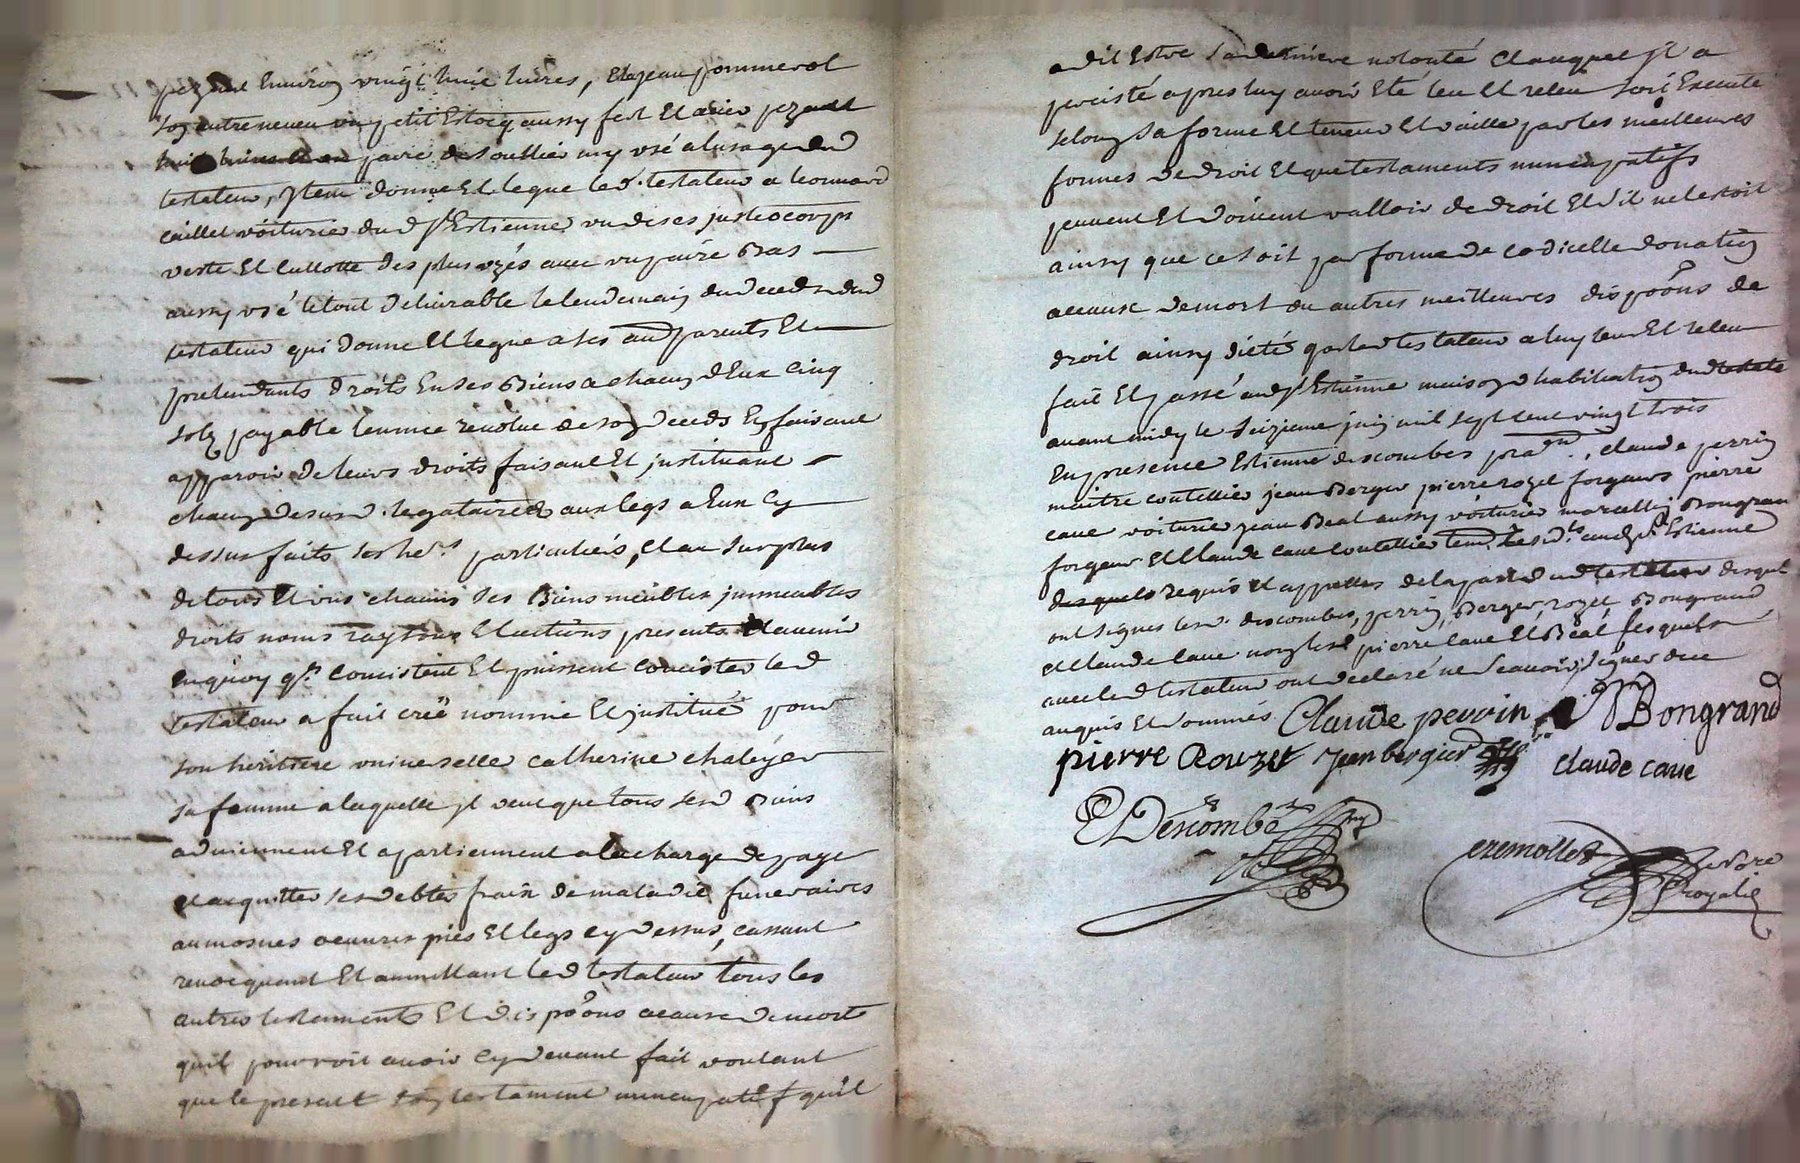 pezant Environ vingt huit livres, Et a jean pommerol
son autre neveu un petit Estocq aussy fert Et acier pezant
huit livres Et un paire de soullier my usé a lusage dud
testateur, Jtem donne Et legue led. testateur a leonnard
caillet voiturier dud St Estienne un de ses justeocorps
veste Et cullotte des plus uzés avec un paire Bas
aussy usé le tout delivrable le lendemain du deceds dud
testateur qui donne Et legue a ses aud parents Et
pretendants droits En ses Biens a chacun dEux cinq
solz payable lannee revolue de son deceds En faisant
apparoir de leurs droits faisant Et justituant
chacun desusd. legataires aux legs a Eux cy
dessus faits ses hers particuliers, Et au surplus
de tous Et uns chacuns ses Biens meubles jmmeubles
droits noms raysons Et actions presents Et avenir
en quoy qs. concistent Et puissent concister led
testateur a fait creé nommé Et justitué pour
son heritiere universelle catherine chaleyer
sa femme a laquelle jl veut que tous sesd Biens
adviennent Et apartiennent a la charge de payer
et acquitter ses debtes frais de maladie funeraires
aumosnes oeuvres pies Et legs cy dessus, cassant
revocquant Et annullant led testateur tous les
autres testements Et dispoons a cause de mort
quil pourroit avoir cy devant fait voulant
que le present son testament nuncupatif quil
a dit Estre sa derniere volonté Et auquel jl a
percisté apres luy avoir Eté leu Et releu soit Executé
selon sa forme Et teneur Et vaille par les meilleures
formes de droit Et que testaments nuncupatifs
peuvent Et doivent valloir de droit Et s'il ne lestoit
ainsy que ce soit par forme de codicelle donation
a cause de mort ou autres meilleures dispoons de
droit ainsy dicté par led testateur a luy leu Et releu
fait Et passé aud St Estienne maison d habitation dud testate
avant midy le seizieme juin mil sept cent vingt trois
En presence Estienne descombes pran., claude perrin
maitre coutellier jean Berger pierre rozet forgeurs pierre
cave voiturier jean Beal aussy voiturier marcellin Bongran
forgeur Et Claude cave coutellier tem. Les dts. aud St Estienne
des quels requis Et appellés de la part dud testateur desquel
ont signes lesd. descombes, perrin, Berger, rozet Bongrand
et Claude cave non lesd pierre cave Et Beal lesquels
avec led testateur ont declaré ne scavoir signer de ce
enquis Et sommés. Claude perrin M Bongrand
pierre Rouzet Jean bergier claude cave
E Descombe
ezemollet
Royal